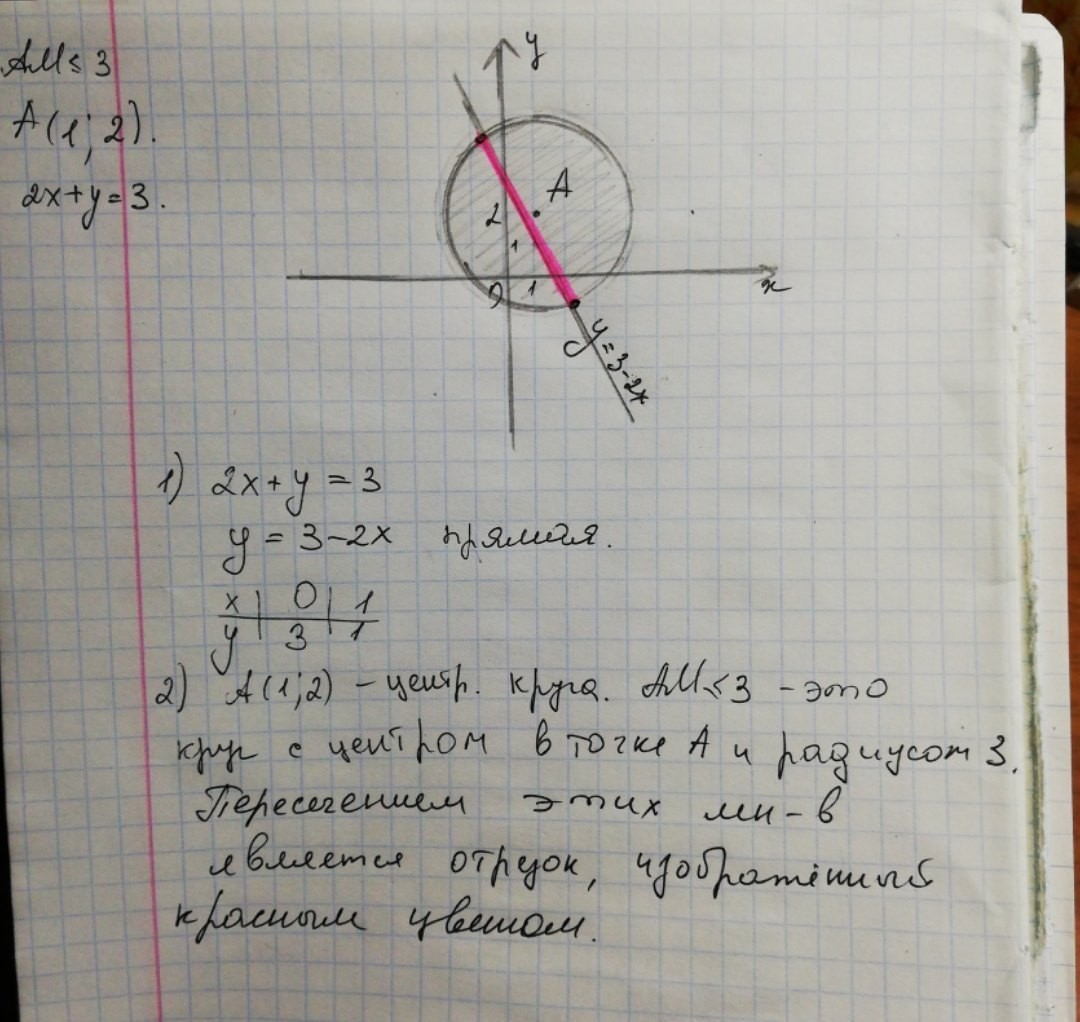 AM ≤ 3
A(1; 2).
2x+y=3.
y
A
2
1
0
1
x
y=3-2x
1) 2x+y = 3
y = 3-2x прямая.
x | 0 | 1
y | 3 | 1
2) A(1;2) - центр. круга. AM≤3 - это
круг с центром в точке A и радиусом 3.
Пересечением этих мн-в
является отрезок, изображённый
красным цветом.